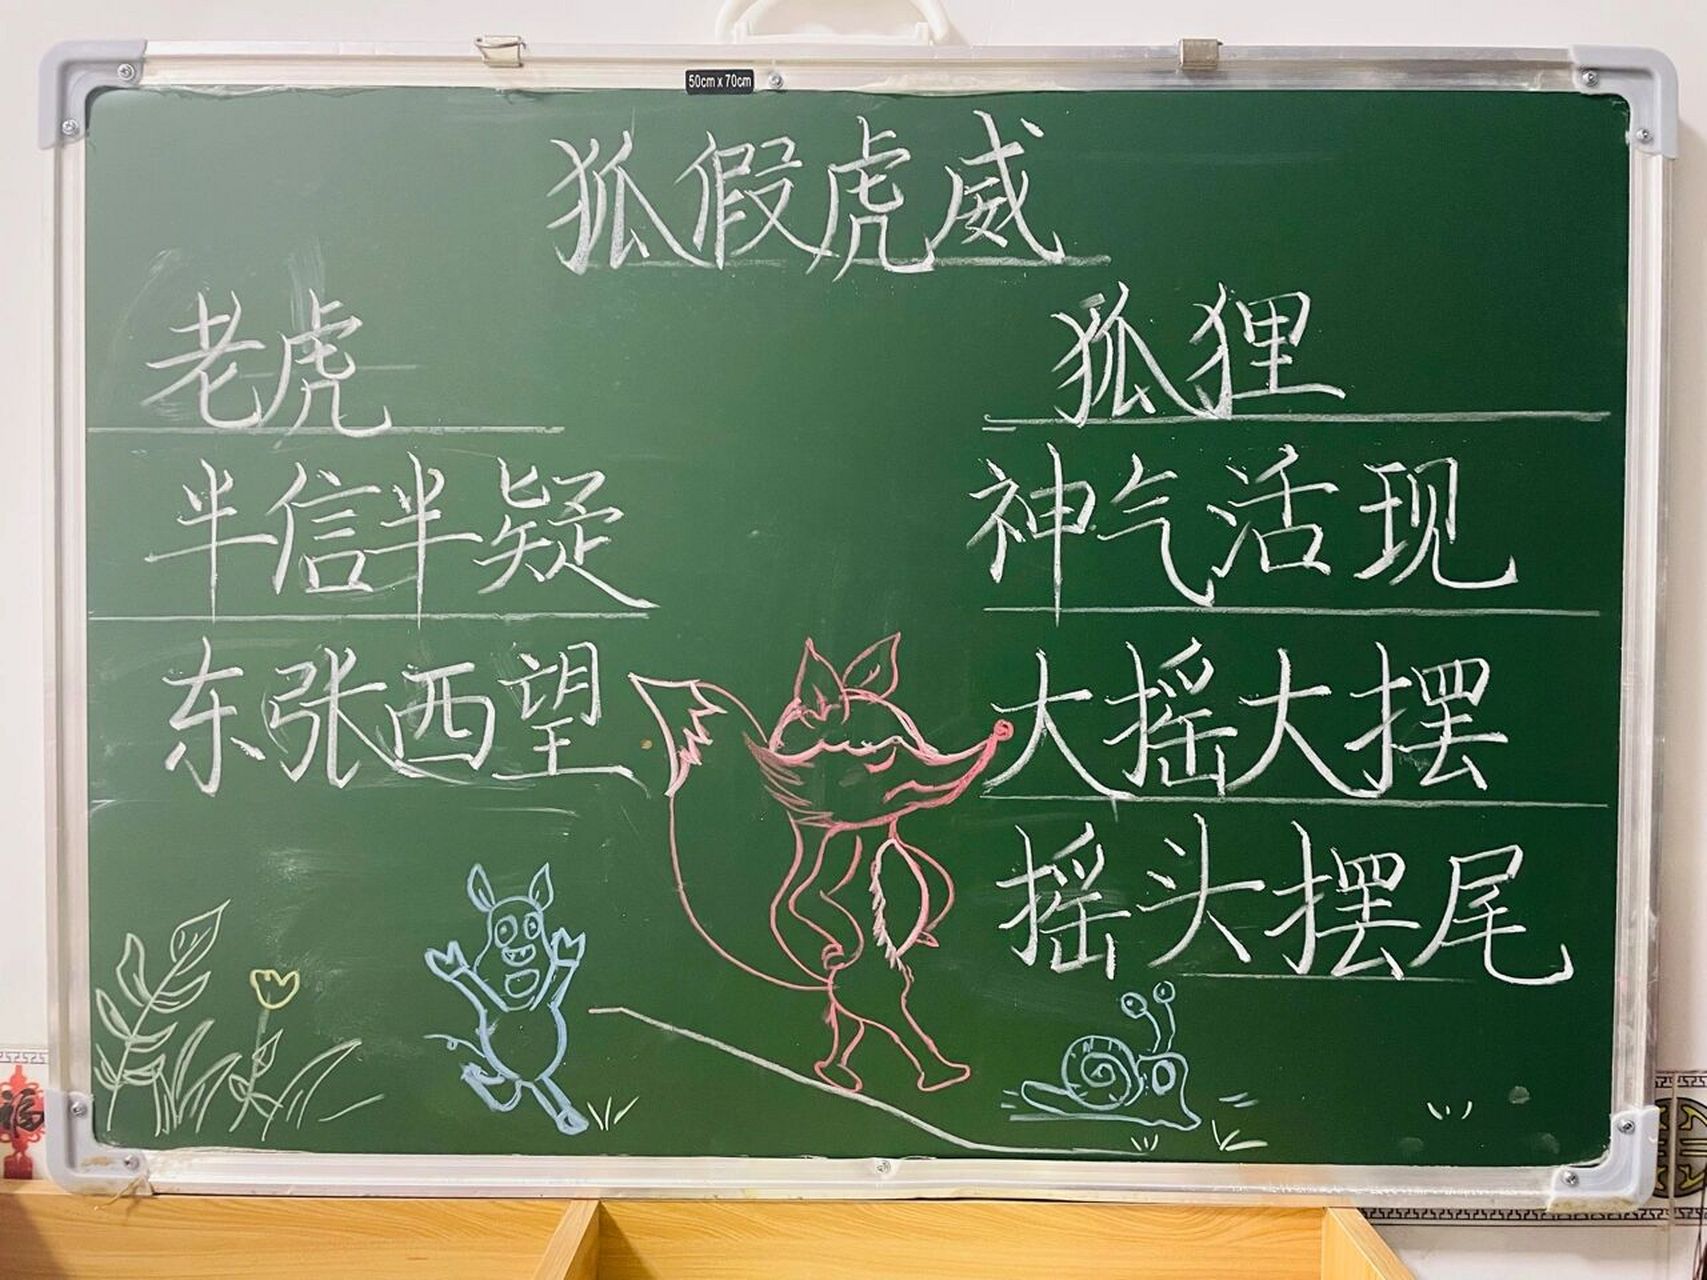 50cm x 70cm
狐假虎威
老虎
半信半疑
东张西望
狐狸
神气活现
大摇大摆
摇头摆尾
福